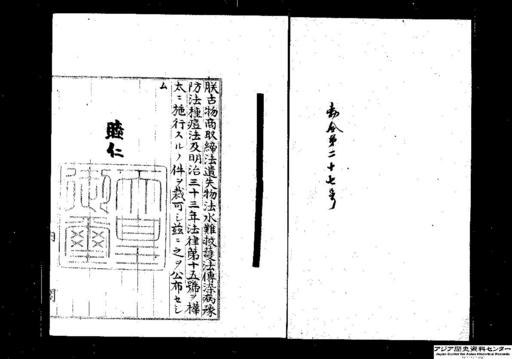 勅令第二十七号
朕古物商取締法遺失物法水難救護法傳染病豫
防法種痘法及明治三十三年法律第十五號ヲ樺
太ニ施行スルノ件ヲ裁可シ茲ニ之ヲ公布セシ
ム
睦仁
天皇御璽
内閣
アジア歴史資料センター
Japan Center for Asian Historical Records